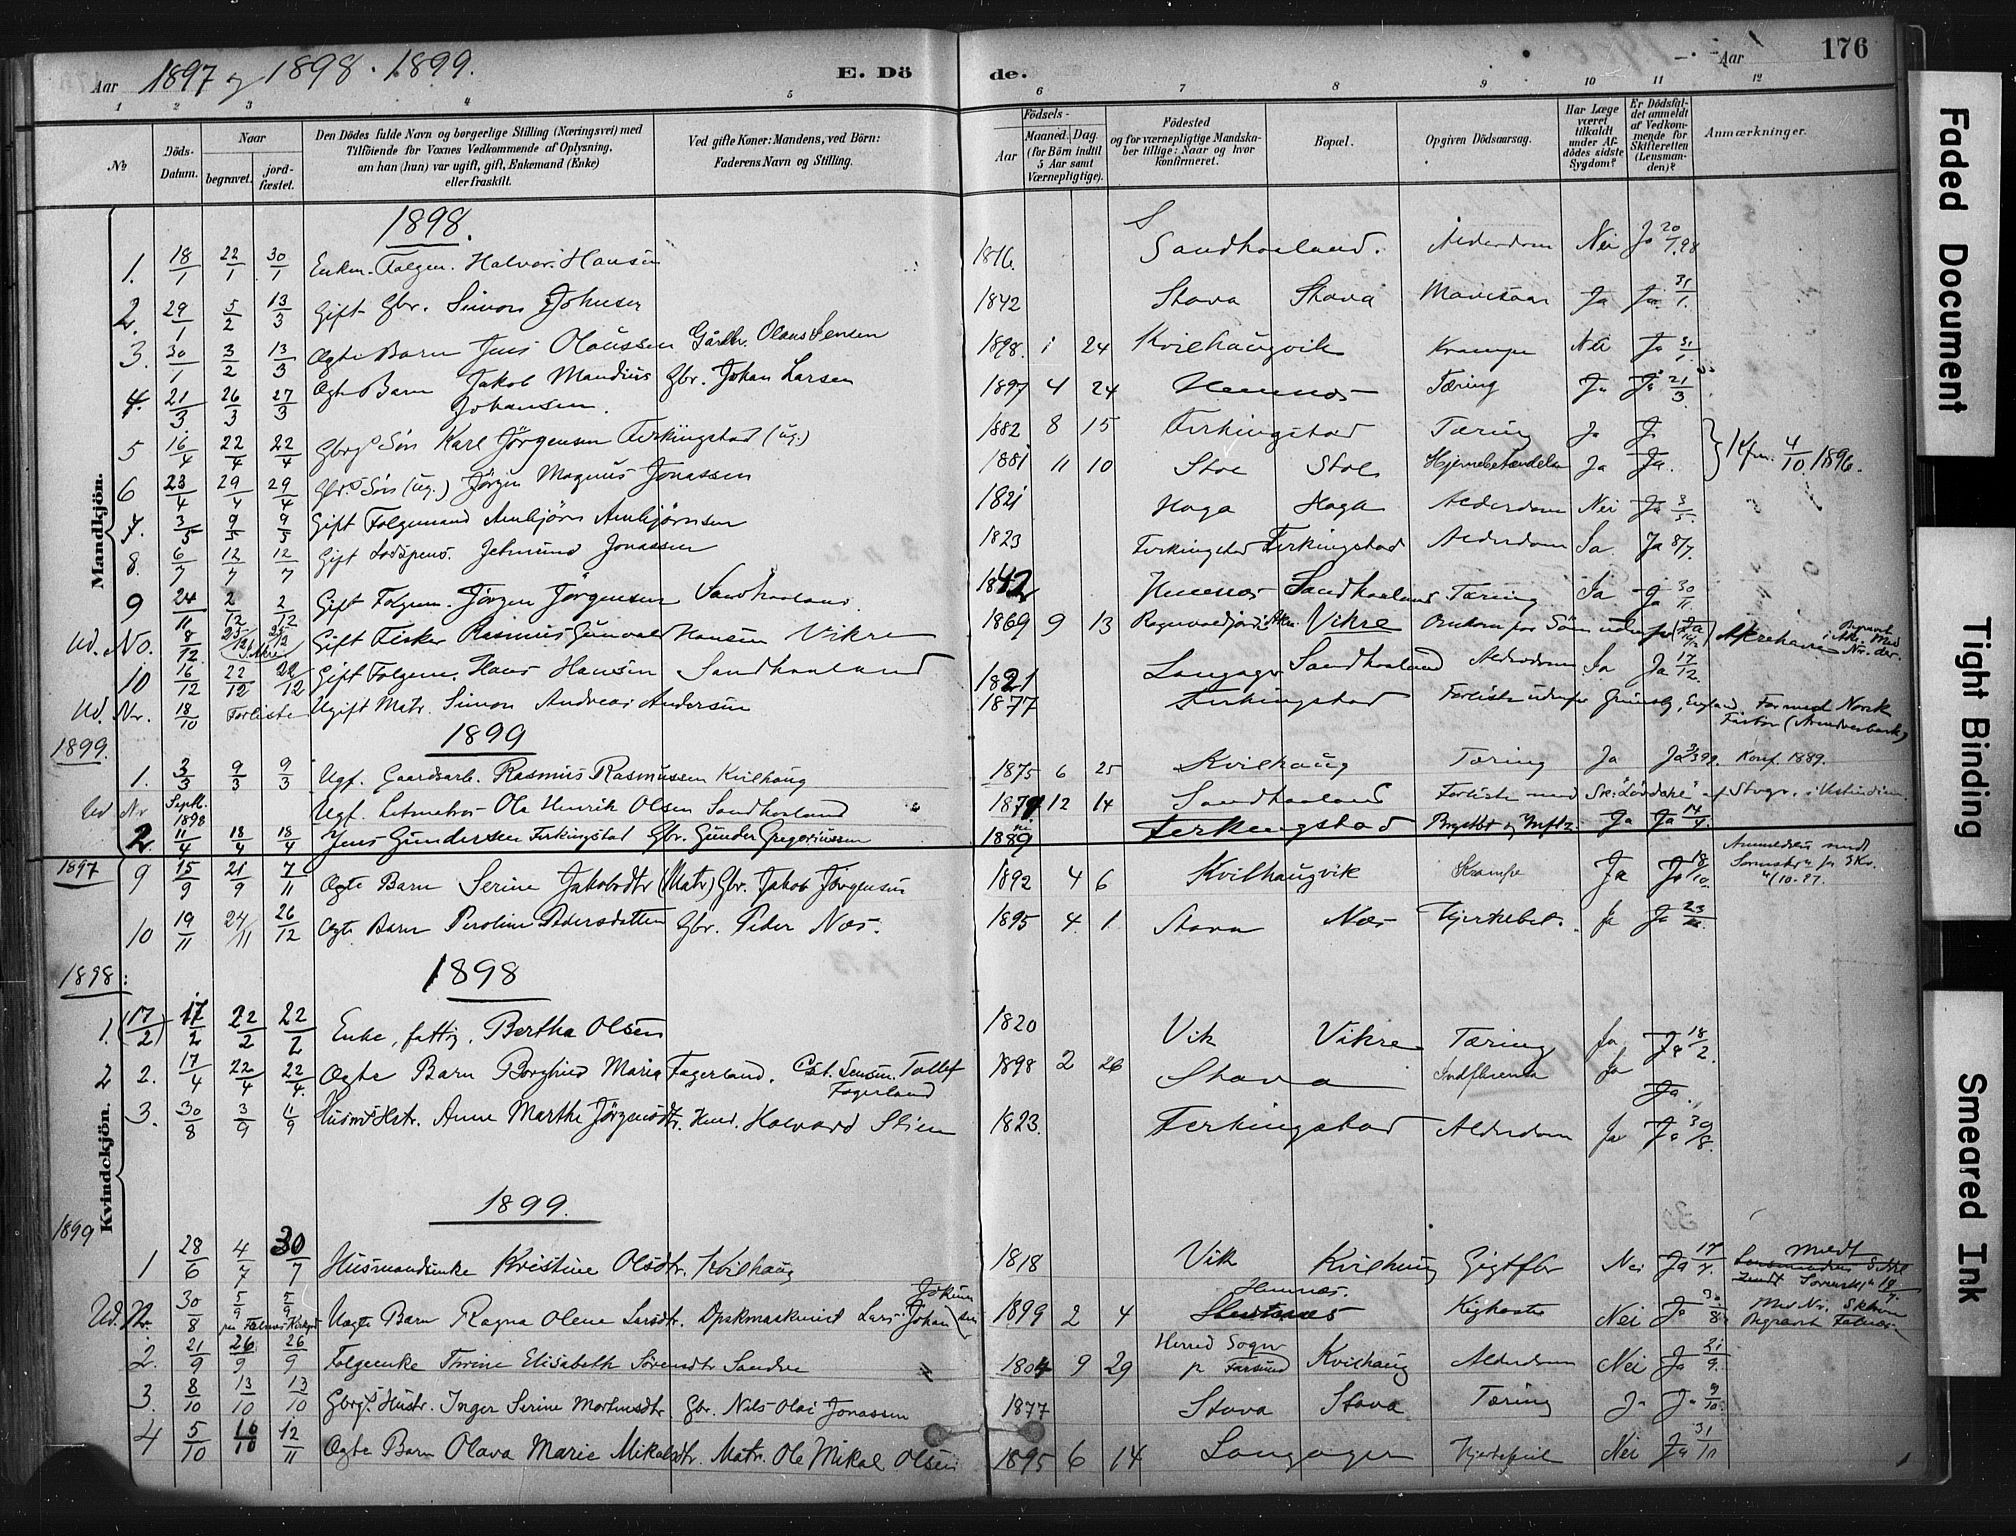 Aar 1897 og 1898. 1899. E. Dö de. Aar 176
1 2 3 4 5 6 7 8 9 10 11 12
No
Döds-Datum.
Naar
begravet.
jord-fæstet.
Den Dödes fulde Navn og borgerlige Stilling (Næringsvei) med
Tilföiende for Voxnes Vedkommende af Oplysning,
om han (hun) var ugift, gift, Enkemand (Enke)
eller fraskilt.
Ved gifte Koner: Mandens, ved Börn:
Faderens Navn og Stilling.
Födsels-
Aar
Maaned. Dag.
(for Börn indtil
5 Aar samt
Værnepligtige).
Födested
og for værnepligtige Mandska-
ber tillige: Naar og hvor
konfirmeret.
Bopæl.
Opgiven Dödsaarsag.
Har Læge
været
tilkaldt
under Af-
dödes sidste
Sygdom?
Er Dödsfal-
det anmeldt
af Vedkom-
mende for
Skifteretten
(Lensman-
den)?
Anmærkninger.
Mandkjön.
1898.
1. 18/1 22/1 30/1 Enkm. Folgem. Halvor Hansen 1816. Sandhaaland. Alderdom Nei Ja 20/1 98
2. 29/1 5/2 13/3 Gift Gbr. Simon Johnsen 1842 Stava Stava Mavesaar Ja Ja 31/1.
3. 30/1 3/2 13/3 Ægte Barn Jens Olaussen Gårdbr. Olaus Jensen 1898. 1 24 Kvilhaugvik Krampe Nei Ja 31/1.
4. 21/3 26/3 27/3 Ægte Barn Jakob Mandius Johansen. Gbr. Johan Larsen 1897 4 24 Hemnes Tæring Ja Ja 21/3
5 16/4 22/4 22/4 Gbrgs Sön Karl Jörgensen Ferkingstad (ug.) 1882 8 15 Ferkingstad Tæring Ja Ja
6 23/4 29/4 29/4 Gbr.s Sön (ug.) Jörgen Magnus Jonassen 1881 11 10 Stol Stol Hjernebetændelse Ja Ja. } Kfm. 4/10 1896.
7. 3/5 9/5 9/5 Gift Folgemand Anbjörn Anbjörnsen 1821 Haga Haga Alderdom Nei Ja 3/5.
8. 6/7 12/7 12/7 Gift Jetmund Jonassen 1823 Ferkingstad Ferkingstad Alderdom Ja. Ja 8/7.
9 24/11 2/12 2/12 Gift Folgem. Jörgen Jörgensen Sandhaaland. 1842 Hemnes Sandhaaland Tæring Ja Ja 30/11
Ud. No. 8/12. 23/12 Gift Fisker Rasmus Gunvald Hansen Vikre 1869 9 13 Vikre
10 16/12 22/12 22/12 Gift Folgem. Hans Hansen Sandhaaland 1821 Langager Sandhaaland Alderdom Ja Ja 17/12.
Ud. Nr. 18/10 Forliste Ugift Matr. Simon Andreas Andersen 1877 Ferkingstad Forliste udenfor Grimsby, England,
1899. 1899
1. 3/3 9/3 9/3 Ugf. Gaardsarb. Rasmus Rasmussen Kvilhaug 1875 6 25 Kvilhaug Tæring Ja Ja Konf. 1889.
Ud Nr Septb. 1898 Ugf. Letmatros Ole Henrik Olsen Sandhaaland 12 14 Sandhaaland Forliste med
2. 11/4 18/4 18/4 Jens Gundersen Ferkingstad Gbr. Gunder Gregoriussen 1889 Ferkingstad Ja Ja 14/4.
Kvindekjön.
1897 9 15/9 21/9 7/11 Ægte Barn Serine Jakobsdtr (Matr) Gbr. Jakob Jörgensen 1892 4 6 Kvilhaugvik Krampe Ja Ja 18/10.
10 19/11 24/11 26/12 Ægte Barn Peroline Pedersdatter Gbr. Peder Næs. 1895 4. 1. Stava Næs Ja Ja
1898: 1898
1. (17/2) 17/2 22/2 22/2 Enke, fattig, Bertha Olsen 1820 Vik Vikre Tæring Ja Ja 18/2.
2 2. 17/4 22/4 22/4. Ægte Barn Borghild Maria Fagerland. Tollef Fagerland 1898 2 26 Stava Indfluensa Ja Ja.
3. 30/8 3/9 11/9 Husmds Hstr. Anne Marthe Jörgensdtr. Halvard Stien 1823. Ferkingstad Alderdom Ja Ja 30/8.
1899 1899.
1 28/6 4/7 30/7 Husmandsenke Kristine Olsdtr. Kvilhaug 1818 Vik Kvilhaug Gigtfbr Nei Ja 17/7.
Ud. Nr. 30/8 5/9 5/9 Uægte Barn Ragna Olene Larsdtr. Lars Johan 1899 2 4 Hemnes. Kighoste Nei Ja 30/8.
2. 21/9 26/9 26/9 Folgeenke Trine Elisabeth Sörensdtr Sandve 1804 9 29 Herred Sogn pr Farsund Kvilhaug Alderdom Nei Ja 21/9.
3. 8/10 13/10 13/10 Gbrgs. Hustr. Inger Serine Mortensdtr Gbr. Nils Olai Jonassen 1877 Stava Stava Tæring Ja Ja 9/10.
4 5/10 10/10 12/11 Ægte Barn Olava Marie Mikalsdtr. Matr. Ole Mikal Olsen 1895 6 14 Langager Hjertefeil Nei Ja 31/10
Faded Document
Tight Binding
Smeared Ink